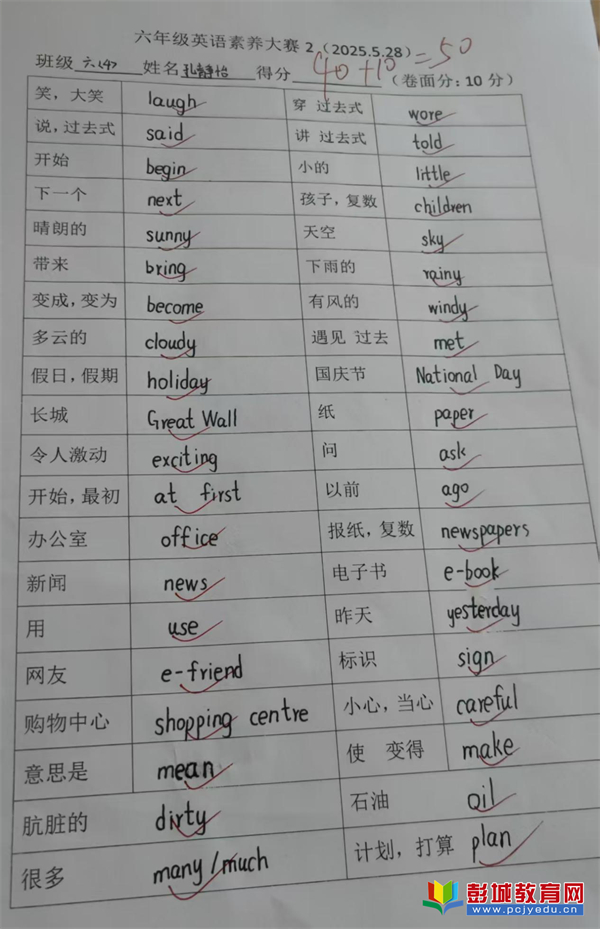 六年级英语素养大赛 2（2025.5.28） 40+10=50
班级 六(4) 姓名 孔静怡 得分 （卷面分：10 分）
笑，大笑 laugh 穿 过去式 wore
说，过去式 said 讲 过去式 told
开始 begin 小的 little
下一个 next 孩子，复数 children
晴朗的 sunny 天空 sky
带来 bring 下雨的 rainy
变成，变为 become 有风的 windy
多云的 cloudy 遇见 过去 met
假日，假期 holiday 国庆节 National Day
长城 Great Wall 纸 paper
令人激动 exciting 问 ask
开始，最初 at first 以前 ago
办公室 office 报纸，复数 newspapers
新闻 news 电子书 e-book
用 use 昨天 yesterday
网友 e-friend 标识 sign
购物中心 shopping centre 小心，当心 careful
意思是 mean 使 变得 make
肮脏的 dirty 石油 oil
很多 many/much 计划，打算 plan
彭城教育网
www.pcjyedu.cn